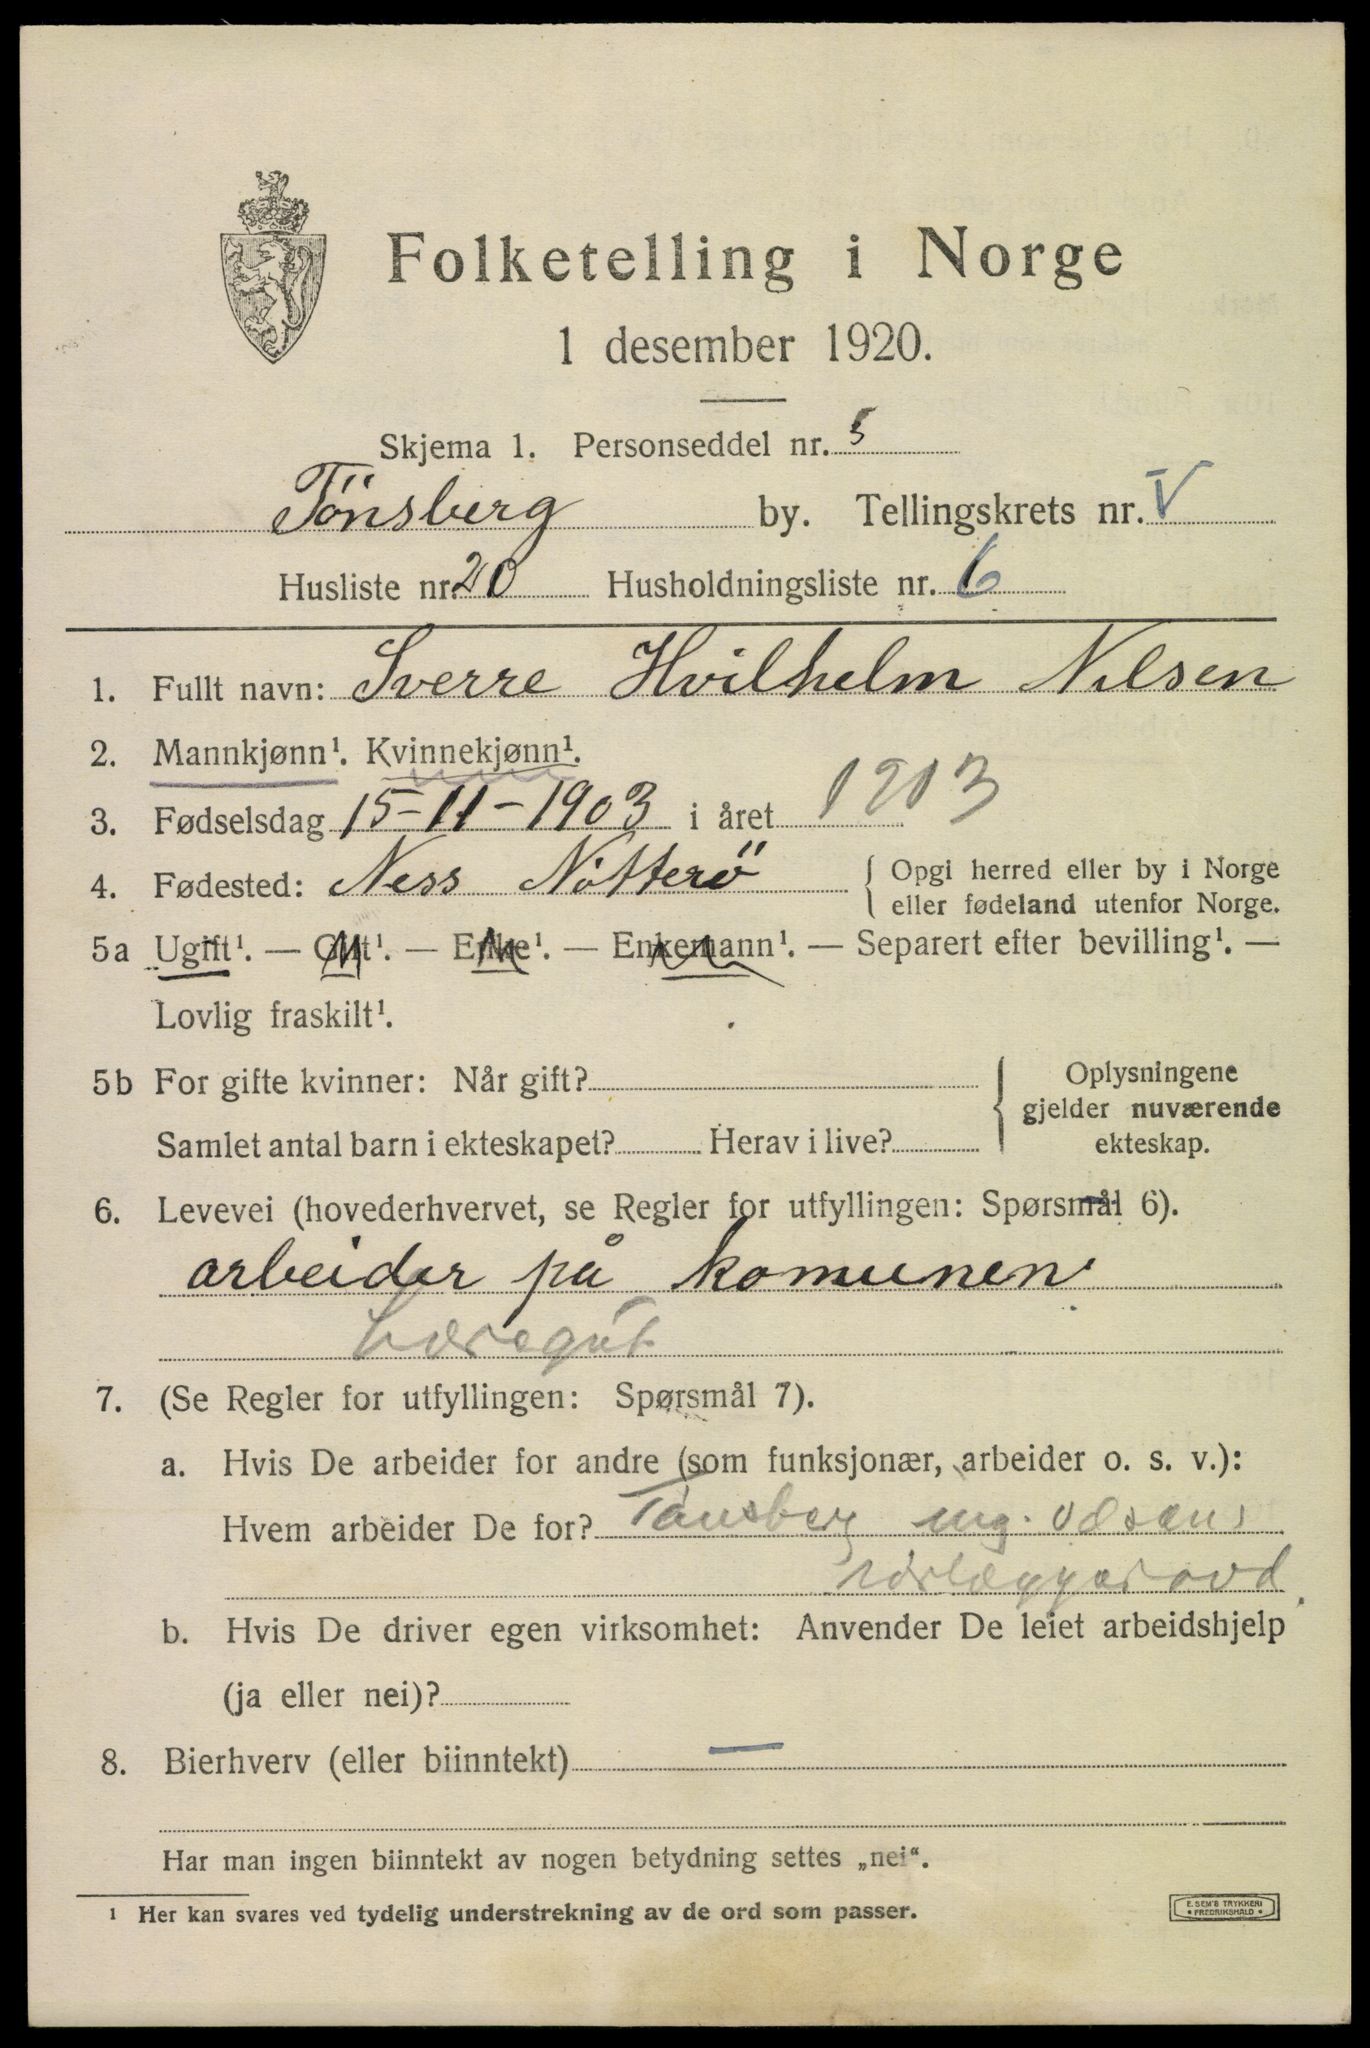 Folketelling i Norge
1 desember 1920.
Skjema 1. Personseddel nr. 5
Tönsberg by. Tellingskrets nr. V
Husliste nr. 20 Husholdningsliste nr. 6
1. Fullt navn: Sverre Hvilhelm Nilsen
2. Mannkjønn¹. Kvinnekjønn¹.
3. Fødselsdag 15-11-1903 i året 1903
4. Fødested: Ness Nötterö { Opgi herred eller by i Norge
eller fødeland utenfor Norge.
5a Ugift¹. — Gift¹. — Enke¹. — Enkemann¹. — Separert efter bevilling¹. —
Lovlig fraskilt¹.
5b For gifte kvinner: Når gift? { Oplysningene
gjelder nuværende
Samlet antal barn i ekteskapet? Herav i live? ekteskap.
6. Levevei (hovederhvervet, se Regler for utfyllingen: Spørsmål 6).
arbeider på komunen
Læregut
7. (Se Regler for utfyllingen: Spørsmål 7).
a. Hvis De arbeider for andre (som funksjonær, arbeider o. s. v.):
Hvem arbeider De for? Tønsberg ing.
rørlæggeravd.
b. Hvis De driver egen virksomhet: Anvender De leiet arbeidshjelp
(ja eller nei)?
8. Bierhverv (eller biinntekt) —
Har man ingen biinntekt av nogen betydning settes „nei“.
¹ Her kan svares ved tydelig understrekning av de ord som passer.
E. SEM'S TRYKKERI
• FREDRIKSHALD •